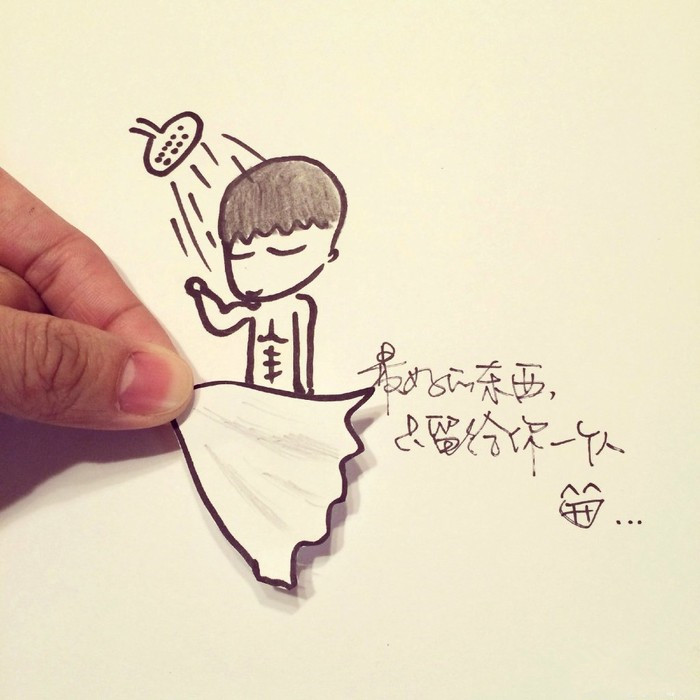 最好的东西,
只留给你一个人
...